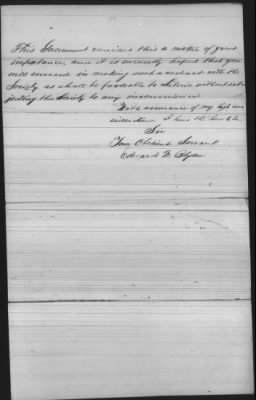 This Government considers this a matter of great
importance, and it is earnestly hoped that you
will succeed in making such a contract with the
Society as shall be favorable to Liberia without sub-
jecting the Society to any inconvenience.
With assurance of my high con-
sideration. I have the honor to be
Sir
Your Obedient Servant
Edward W. Blyden